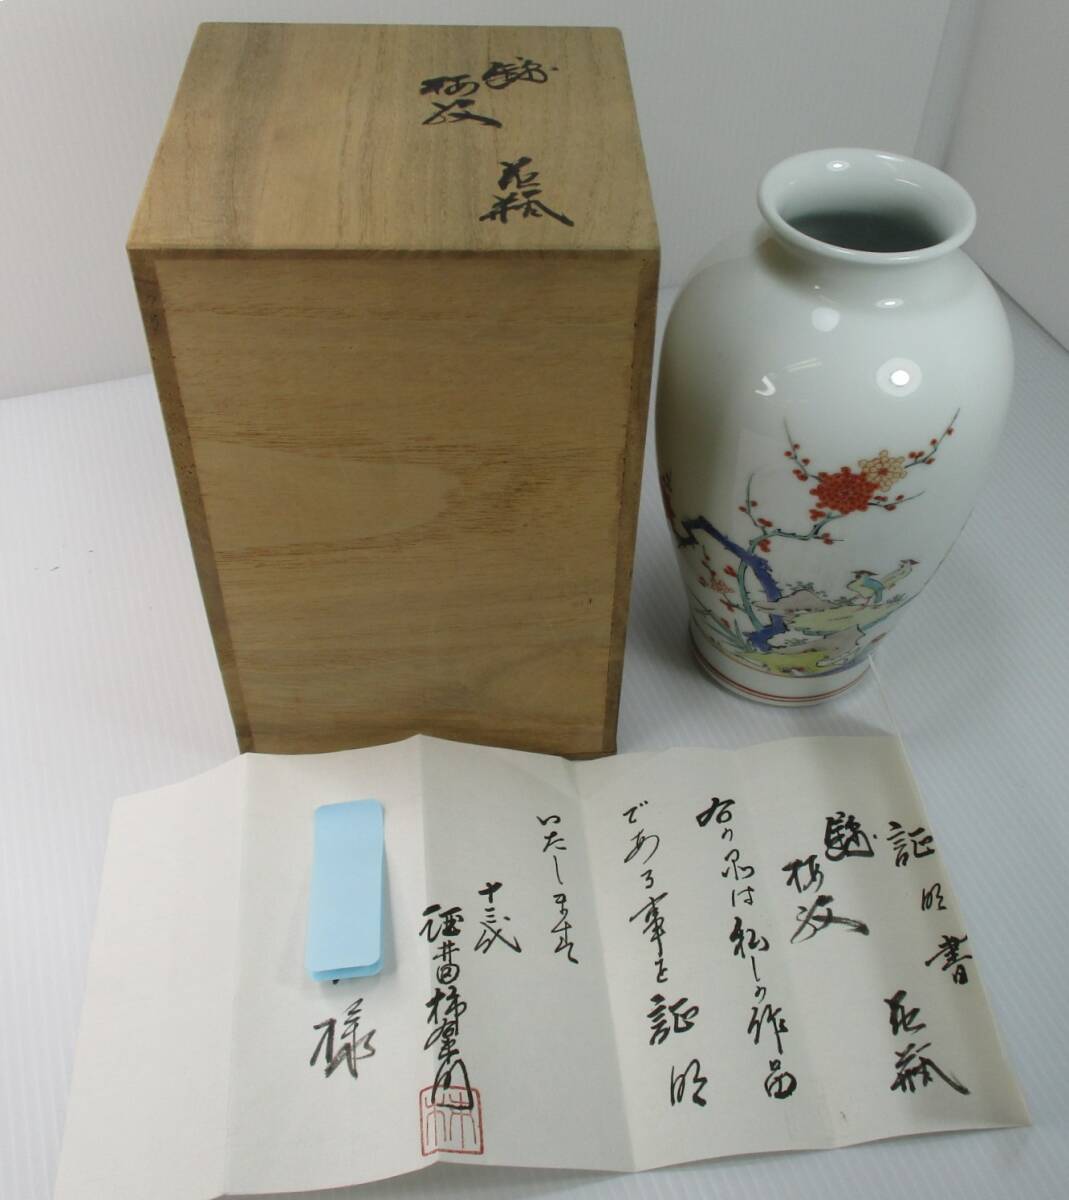 錦
梅文
花瓶
証明書
錦
梅文
花瓶
右の品は私しの作品
である事を証明
いたします
十三代
酒井田柿右衛門
様